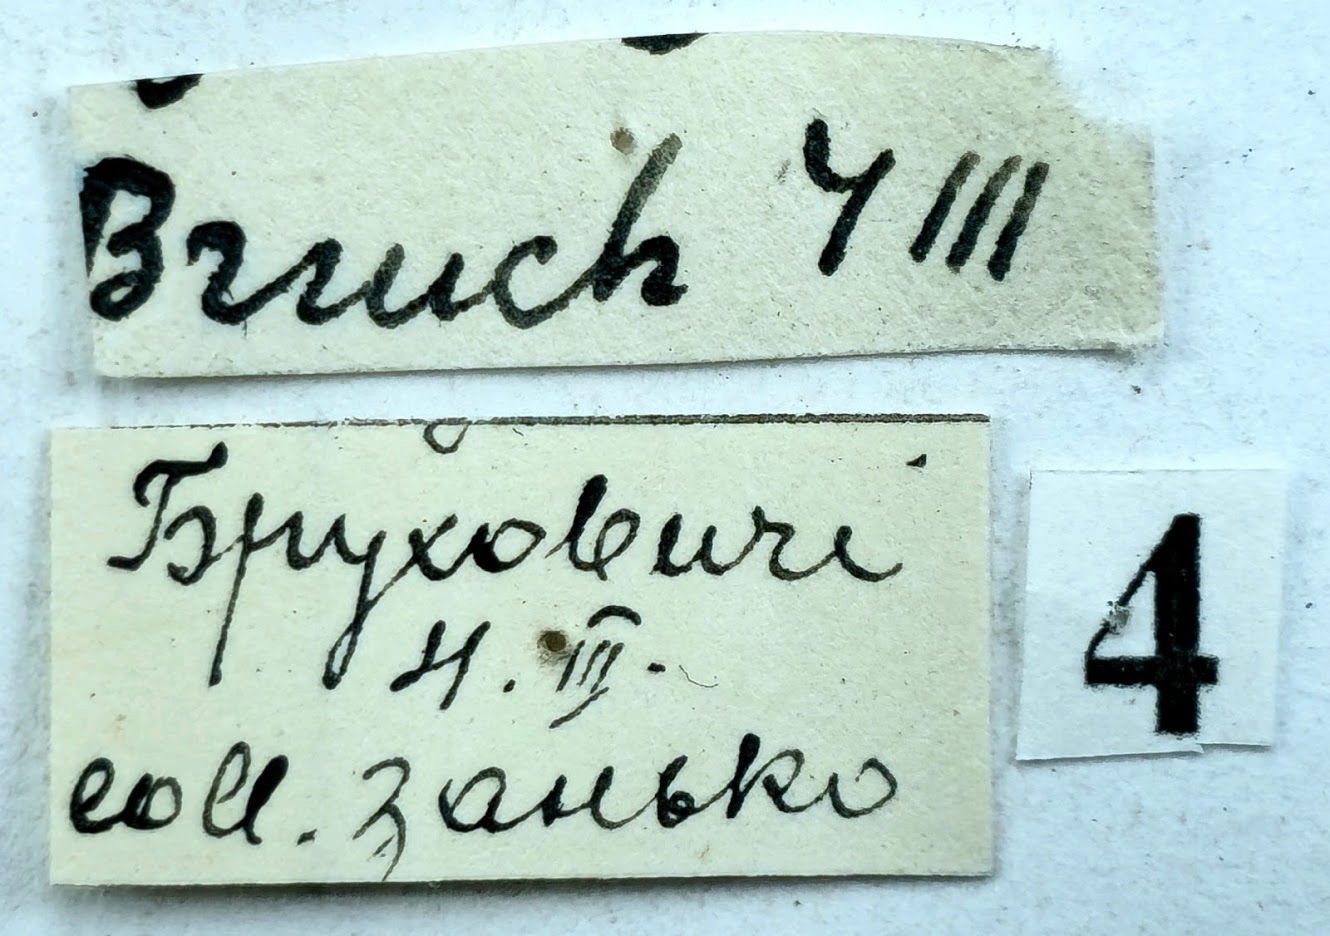 Bruch 4 III
Бруховичі
4. III.
coll. Занько
4